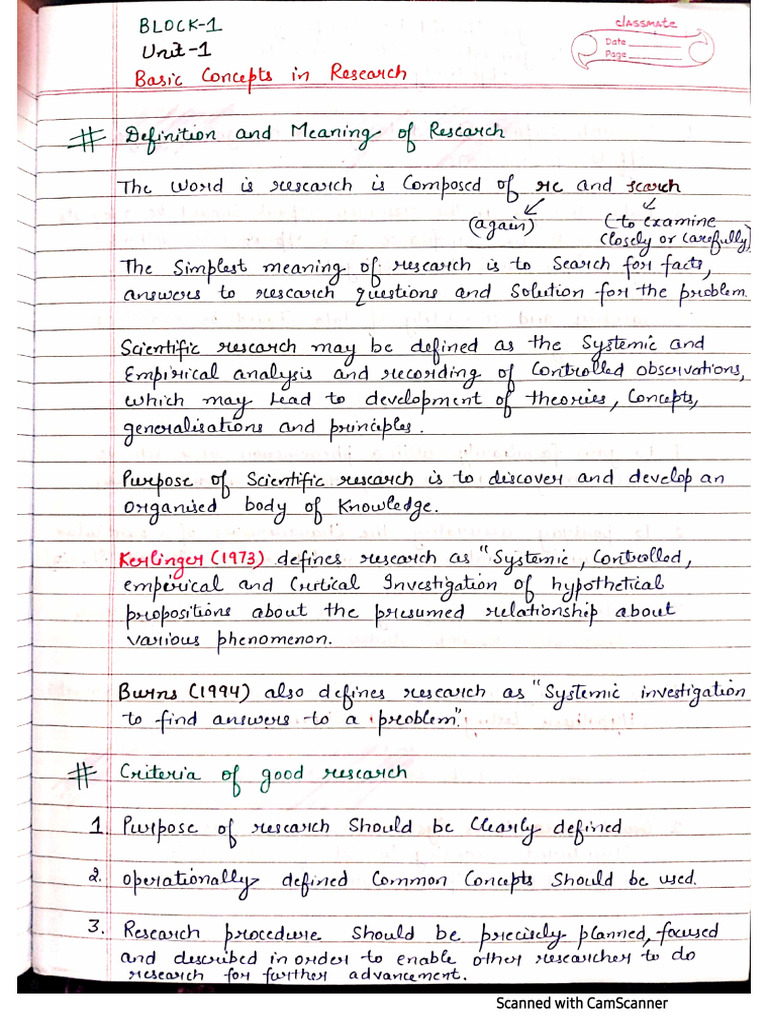 BLOCK-1
classmate
Unit-1
Date
Page
Basic Concepts in Research
# Definition and Meaning of Research
The word is research is Composed of re and search
(again) (to examine
closely or carefully)
The Simplest meaning of research is to Search for facts,
answers to research questions and Solution for the problem.
Scientific research may be defined as the Systemic and
Empirical analysis and recording of Controlled observations,
which may Lead to development of theories, Concepts,
generalisations and principles.
Purpose of Scientific research is to discover and develop an
Organised body of Knowledge.
Kerlinger (1973) defines research as "Systemic, Controlled,
empirical and Critical Investigation of hypothetical
propositions about the presumed relationship about
various phenomenon.
Burns (1994) also defines research as "Systemic investigation
to find answers to a problem".
# Criteria of good research
1. Purpose of research Should be Clearly defined
2. Operationally defined Common Concepts Should be used.
3. Research procedure Should be precisely planned, focused
and described in order to enable other researcher to do
research for further advancement.
Scanned with CamScanner